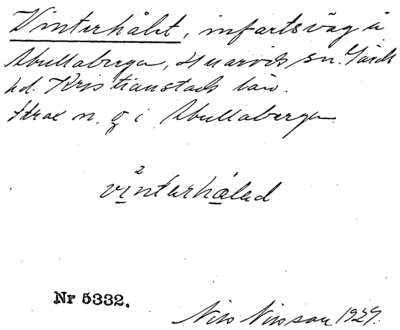 Vinterhålet, infartsväg i
Abullaberga, Huaröds sn. Gärds
hd. Kristianstads län.
Strax n. g i Abullaberga
vinterhålad
Nr 5332.
Nils Nilsson 1929.